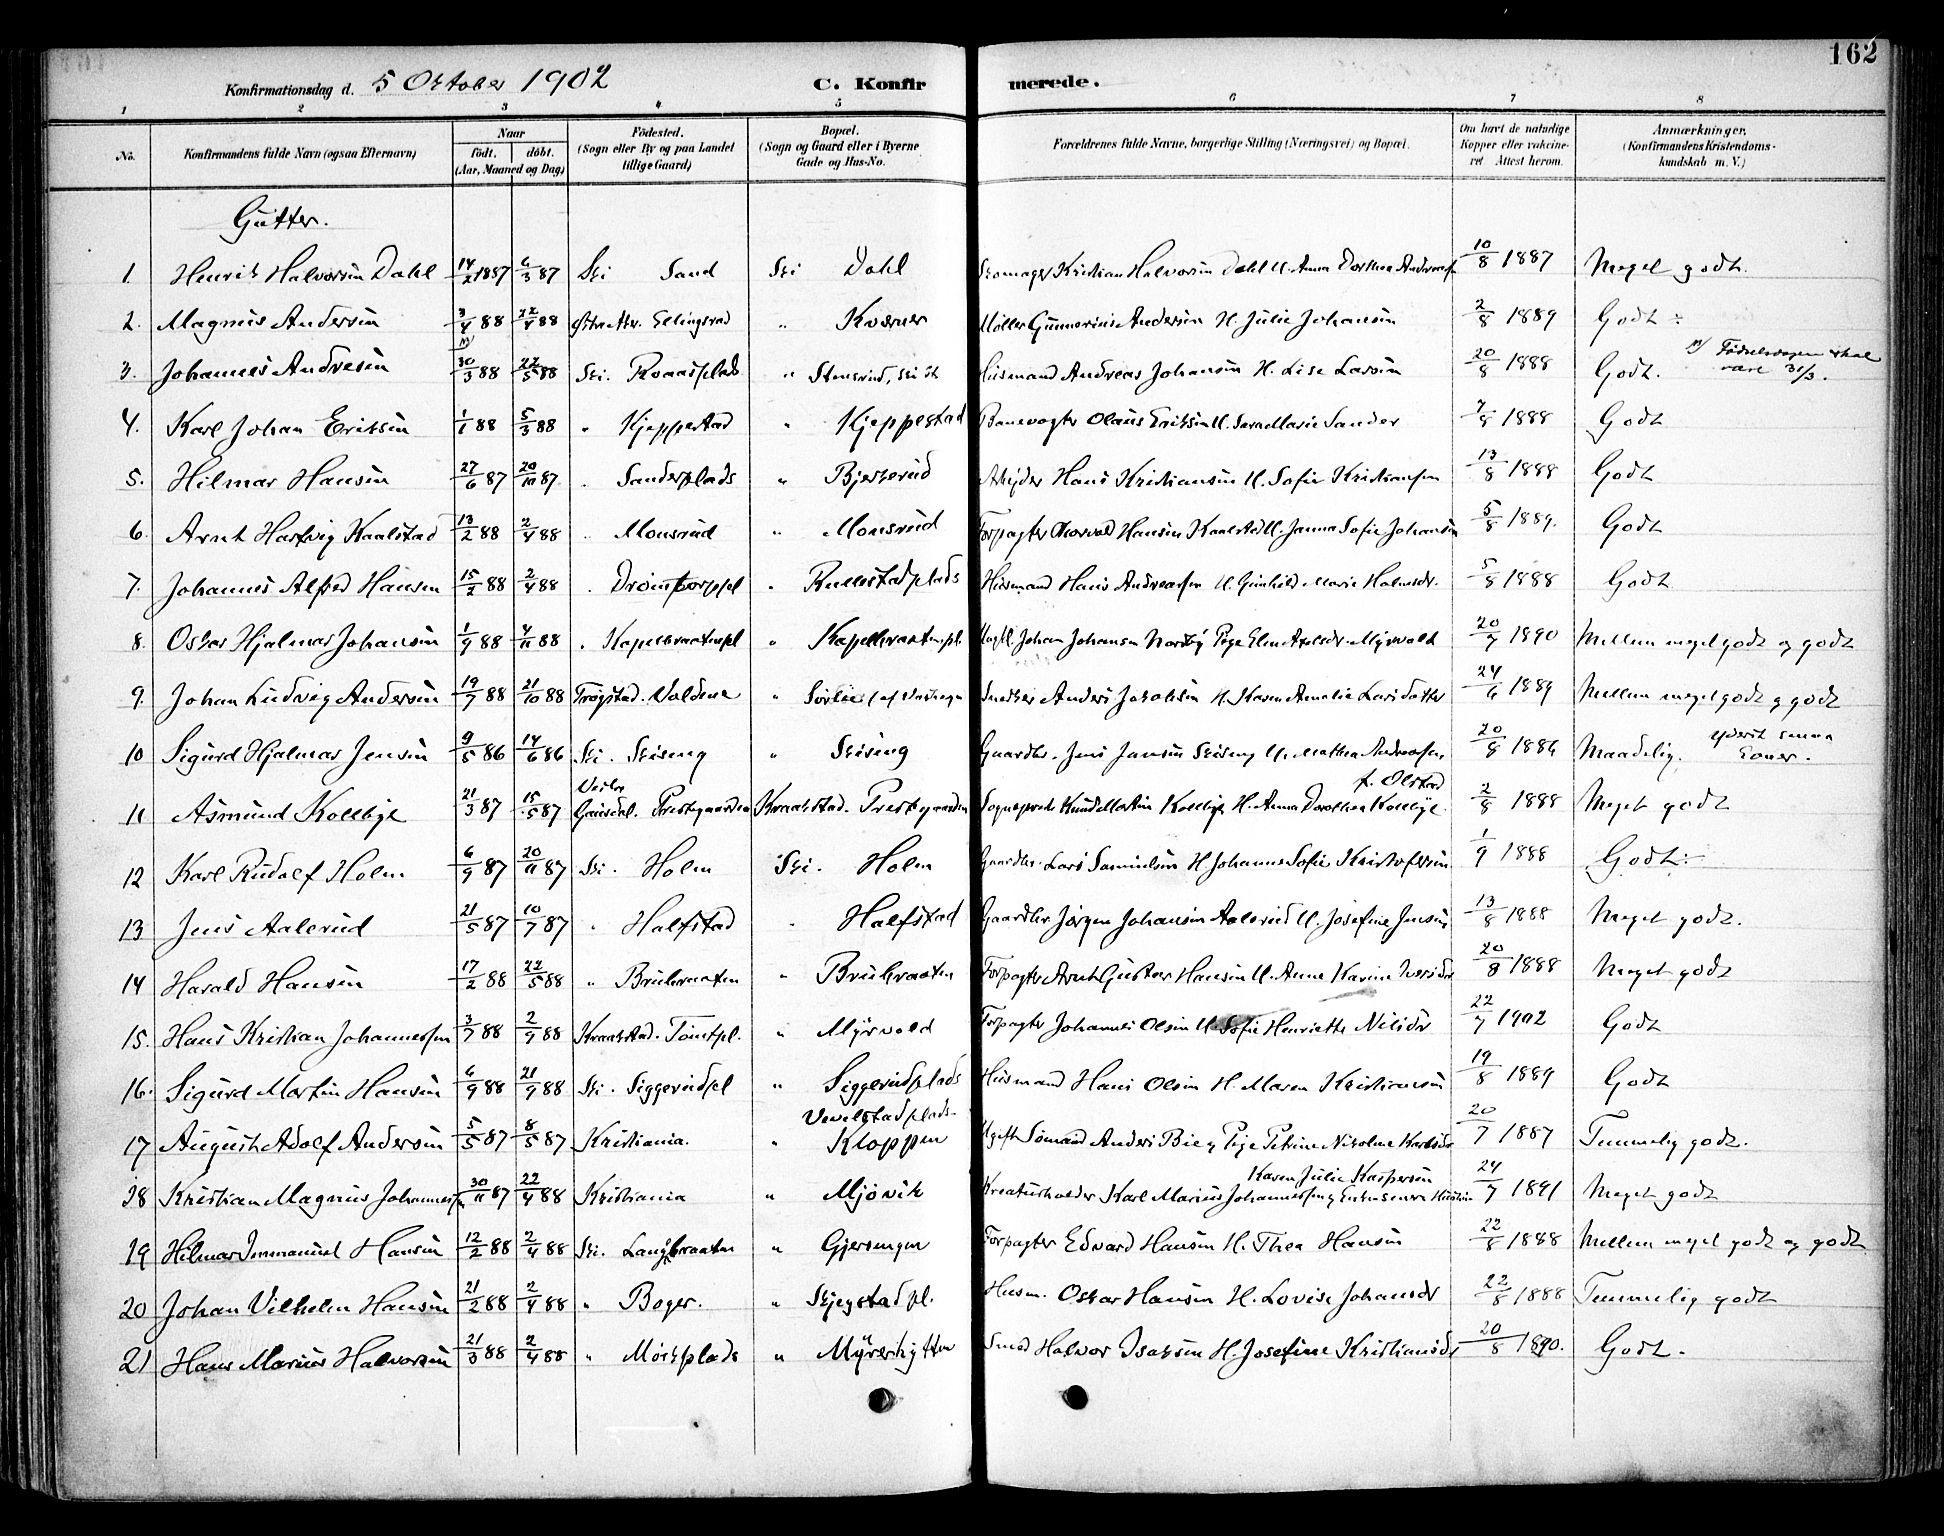 162
Konfirmationsdag d. 5 October 1902 C. Konfirmerede.
1 2 3 4 5 6 7 8
No. Konfirmandens fulde Navn (ogsaa Efternavn) Naar født. døbt. (Aar, Maaned og Dag) Fødested. (Sogn eller By og paa Landet tillige Gaard) Bopæl. (Sogn og Gaard eller i Byerne Gade og Hus-No. Forældrenes fulde Navne, borgerlige Stilling (Næringsvei) og Bopæl. Om havt de naturlige Kopper eller vakcineret Attest herom. Anmærkninger. (Konfirmandens Kristendomskundskab m. V.)
Gutter.
1. Henrik Halvorsen Dahl 14/2 1887 6/3 87 Ski Sand Ski Dahl Skomager Kristian Halvorsen Dahl H. Anna Dorthea Andersen 10/8 1887 Meget godt.
2. Magnus Andersen 3/4 88 22/4 88 Ellingsrud " Kværner Møller Gunnerius Andersen H. Julie Johansen 2/8 1889 Godt ÷
3. Johannes Andresen 30/3 88 22/5 88 Ski. Roaasplads " Stensrud, Ski Husmand Andreas Johansen H. Lise Larsen 20/8 1888 Godt. Fødselsdagen skal være 31/3.
4. Karl Johan Eriksen 1/1 88 5/3 88 " Kjeppestad " Kjeppestad Banevogter Olaus Eriksen H. Sara Marie Sander 7/8 1888 Godt
5. Hilmar Hansen 27/6 87 20/10 87 " Sanderplads " Bjerkerud Arbejder Hans Kristiansen H. Sofie Kristiansen 13/8 1888 Godt
6. Arnt Hartvig Kaalstad 13/2 88 2/4 88 " Monsrud " Monsrud Forpagter Thorvald Hansen Kaalstad H. Janna Sofie Johansen 5/8 1889. Godt
7. Johannes Alfred Hansen 15/2 88 2/4 88 " Drømtorppl " Rullestadplads Husmand Hans Andreassen H. Gunhild Marie Halvorsdr. 5/8 1888 Godt
8. Oskar Hjalmar Johansen 1/9 88 4/11 88 " Kapelbraatenpl " Kapelbraatenpl. Ungkl. Johan Johansen Nordby Pige Elen Axelsdr. Myrvold 20/7 1890 Mellem meget godt og godt
9. Johan Ludvig Andersen 19/7 88 21/10 88 Trøgstad. Voldene " Sørlie Snedker Anders Jakobsen H. Karen Amalie Larsdatter 24/6 1889 Mellem meget godt og godt
10 Sigurd Hjalmar Jensen 9/5 86 14/6 86 Ski. Skiseng " Skiseng Gaardbr. Jens Jensen Skiseng H. Mathea Andreasen 20/8 1886 Maadelig. yderst smaa Evner.
11 Asmund Kolbye 21/3 87 15/5 87 Vestre Gausdal. Prestegaarden Kraakstad. Prestegaarden Sogneprest Knud Martin Kolbye H. Anna Dorothea Kolbye f. Olstad 2/8 1888 Meget godt
12 Karl Rudolf Holm 6/9 87 20/11 87 Ski. Holm Ski. Holm Gaardbr. Lars Samuelsen H. Johanne Sofie Kristofersen 1/9 1888 Godt ÷
13 Jens Aalerud 21/5 87 10/7 87 " Halfstad " Halfstad Gaardbr Jørgen Johansen Aalerud H. Josefine Jensen 13/8 1888 Meget godt.
14 Harald Hansen 17/2 88 22/5 88 " Brukraaten " Brukraaten Forpagter Arnt Gustav Hansen H. Anne Karine Iversdr 20/8 1888 Meget godt
15. Hans Kristian Johannessen 3/7 88 2/9 88 Kraakstad. Tomtpl. " Myrvold Forpagter Johannes Olsen H. Sofie Henriette Nilsdr 22/7 1902 Godt
16. Sigurd Martin Hansen 6/9 88 21/9 88 Ski. Siggerudpl " Siggerudplads Husmand Hans Olsen H. Maren Kristiansen 19/8 1889 Godt
17 August Adolf Andersen 5/5 87 8/5 87 Kristiania. " Vevelstadplads Kloppen Ugift Sømand Anders Bie og Pige Petrine Nikoline Karlsdr 20/7 1887 Temmelig godt.
18 Kristian Magnus Johannessen 30/11 87 22/4 88 Kristiania " Mjøvik Kreaturholder Karl Marius Johannessen og Karen Julie Kaspersen 24/7 1891 Meget godt
19 Hilmar Immanuel Hansen 12/2 88 2/4 88 Ski. Langbraaten " Gjersengen Forpagter Edvard Hansen H. Thea Hansen 22/8 1888 Mellem meget godt og godt
20 Johan Vilhelm Hansen 21/2 88 2/4 88 " Boger. " Skjegstadpl. Husm. Oskar Hansen H. Lovise Johansdr 22/8 1888 Temmelig godt
21 Hans Marius Halvorsen 21/3 88 2/4 88 " Mørkplads " Myrerhytten Smed Halvor Isaksen H. Josefine Kristiansdr 20/8 1890. Godt.